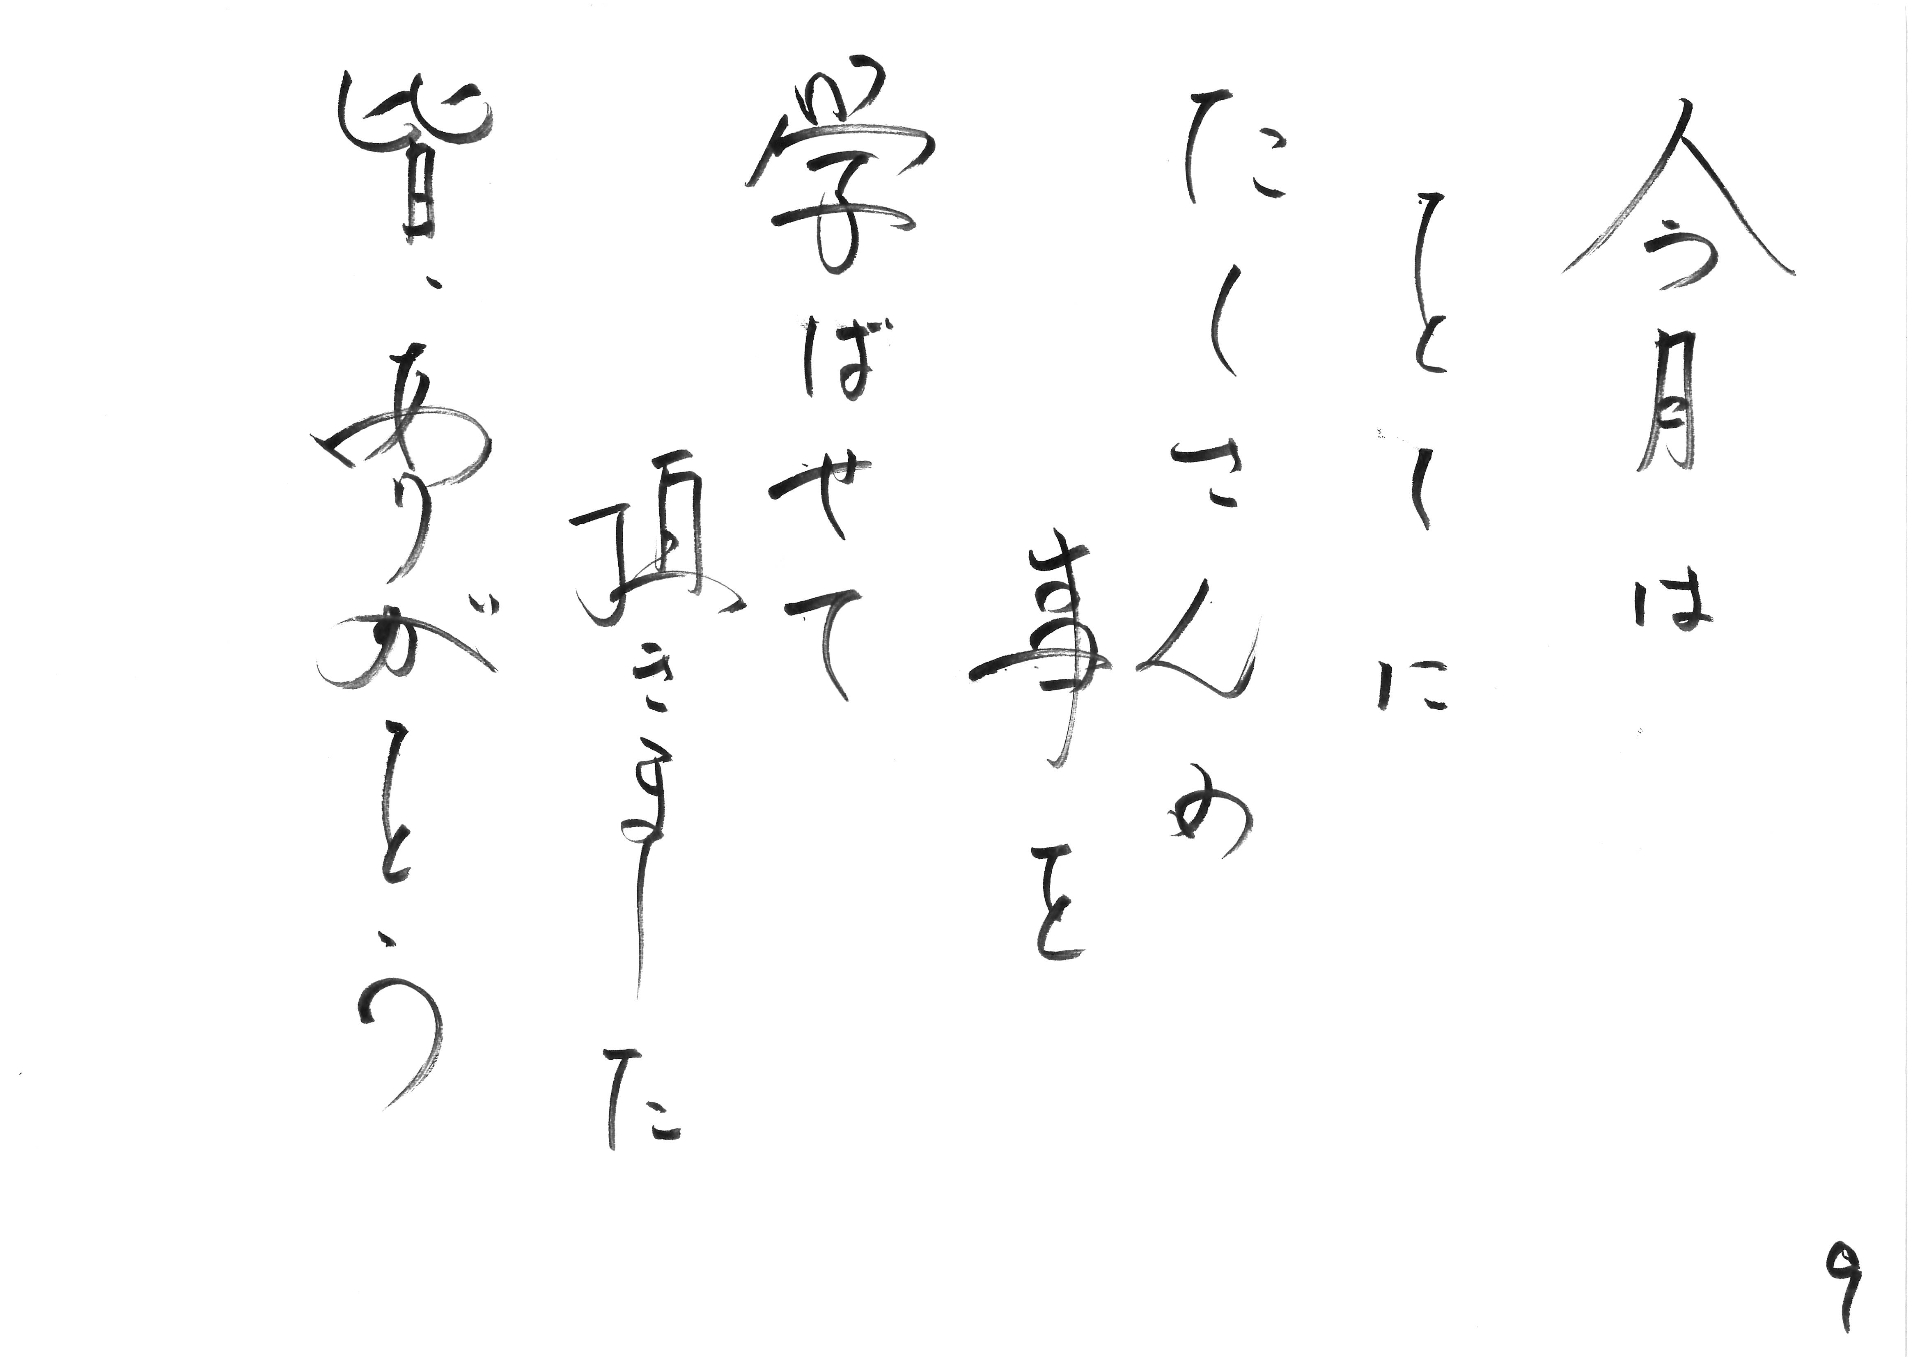 今月は
とくに
たくさんの
事を
学ばせて
頂きました
皆、ありがとう
9